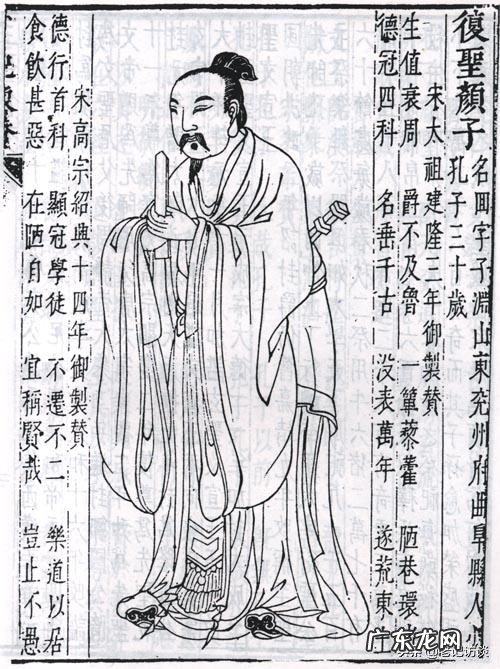 復聖顏子
名囬字子淵山東兗州府曲阜縣人少
孔子三十歲
宋太祖建隆三年御製贊
生值衰周 爵不及魯 一簞藜藿 陋巷環
德冠四科 名垂千古 没表萬年 遂荒東
宋高宗紹興十四年御製贊
德行首科 顯冠學徒 不遷不二 樂道以居
食飲甚惡 在陋自如 宜稱賢哉 豈止不愚
广东龙网